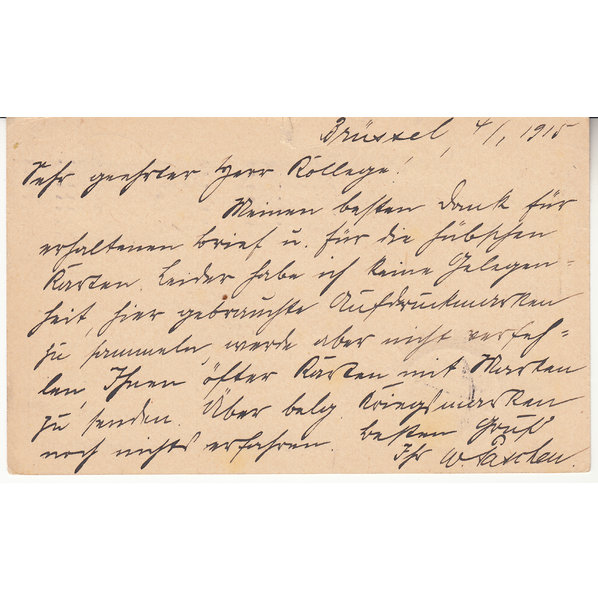 Brüssel, 4/1, 1915
Sehr geehrter Herr Kollege!
Meinen besten Dank für
erhaltenen Brief u. für die hübschen
Karten. Leider habe ich keine Gelegen=
heit, hier gebrauchte Aufdruckmarken
zu sammeln, werde aber nicht verfeh=
len, Ihnen öfter Karten mit Marken
zu senden. Über belg. Kriegsmarken
noch nichts erfahren. Besten Gruß
Ihr W. Paschen.